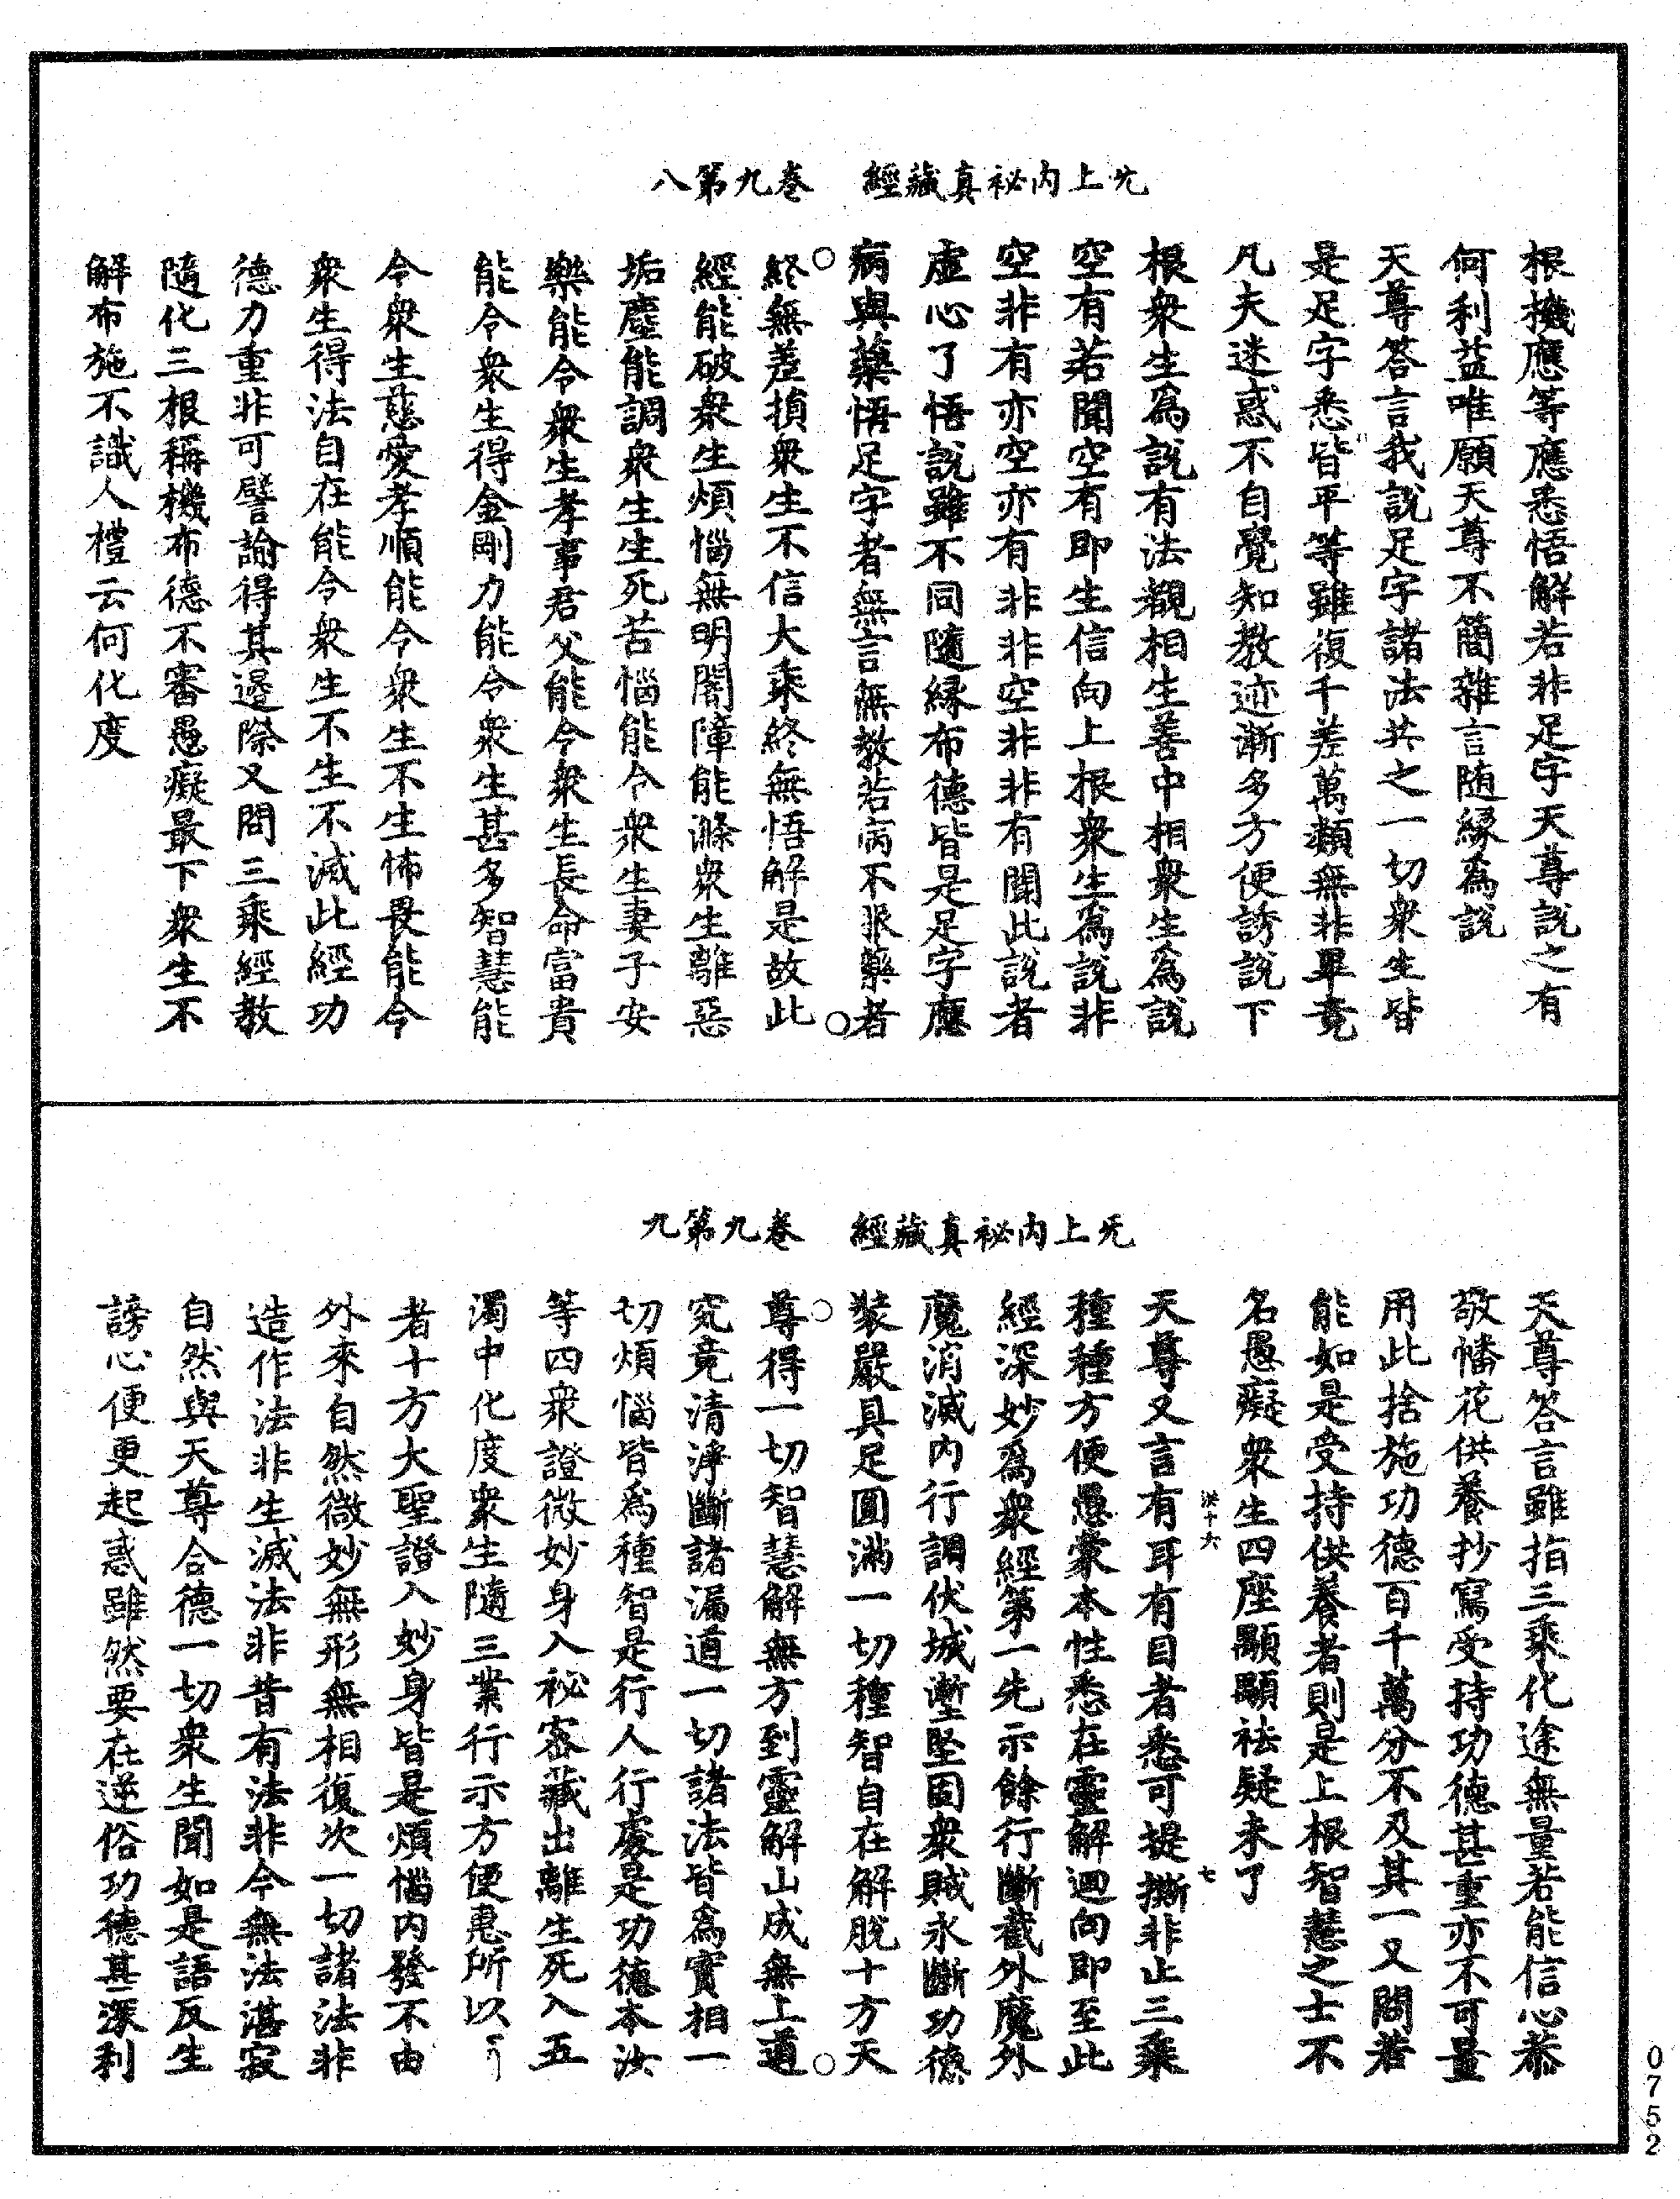 无上內祕真藏經　卷九第八
根機應等應悉悟解若非足字天尊說之有
何利益唯願天尊不簡雜言随縁為說
天尊答言我說足字諸法共之一切衆生皆
是足字悉皆平等雖復千差萬類無非畢竟
凡夫迷惑不自覺知教迹漸多方便誘說下
根衆生為說有法觀相生善中相衆生為說
空有若聞空有即生信向上根衆生為說非
空非有亦空亦有非非空非非有聞此說者
虛心了悟說雖不同隨縁布德皆是足字應
病與藥悟足字者無言無教若病不服藥者
終無差損衆生不信大乘終無悟解是故此
經能破衆生煩惱無明闇障能滌衆生離惡
垢塵能調衆生生死苦惱能令衆生妻子安
樂能令衆生孝事君父能令衆生長命富貴
能令衆生得金剛力能令衆生甚多智慧能
令衆生慈愛孝順能令衆生不生怖畏能令
衆生得法自在能令衆生不生不滅此經功
德力重非可譬諭得其邊際又問三乘經教
隨化三根稱機布德不審愚癡最下衆生不
解布施不識人禮云何化度
无上內祕真藏經　卷九第九
天尊答言雖指三乘化途無量若能信心恭
敬幡花供養抄寫受持功德甚重亦不可量
用此捨施功德百千萬分不及其一又問若
能如是受持供養者則是上根智慧之士不
名愚癡衆生四座顒顒祛疑未了
洪十六　七
天尊又言有耳有目者悉可提撕非止三乘
種種方便愚蒙本性悉在靈解迴向即至此
經深妙為衆經第一先示餘行斷截外魔外
魔消滅內行調伏城塹堅固衆賊永斷功德
裝嚴具足圓滿一切種智自在解脫十方天
尊得一切智慧解無方到靈解山成無上道
究竟清淨斷諸漏道一切諸法皆為實相一
切煩惱皆為種智是行人行處是功德本汝
等四衆證微妙身入祕密藏出離生死入五
濁中化度衆生隨三業行示方便惠所以
者十方大聖證入妙身皆是煩惱內發不由
外來自然微妙無形無相復次一切諸法非
造作法非生滅法非昔有法非今無法湛寂
自然與天尊合德一切衆生聞如是語反生
謗心便更起惑雖然要在逆俗功德甚深利
0752